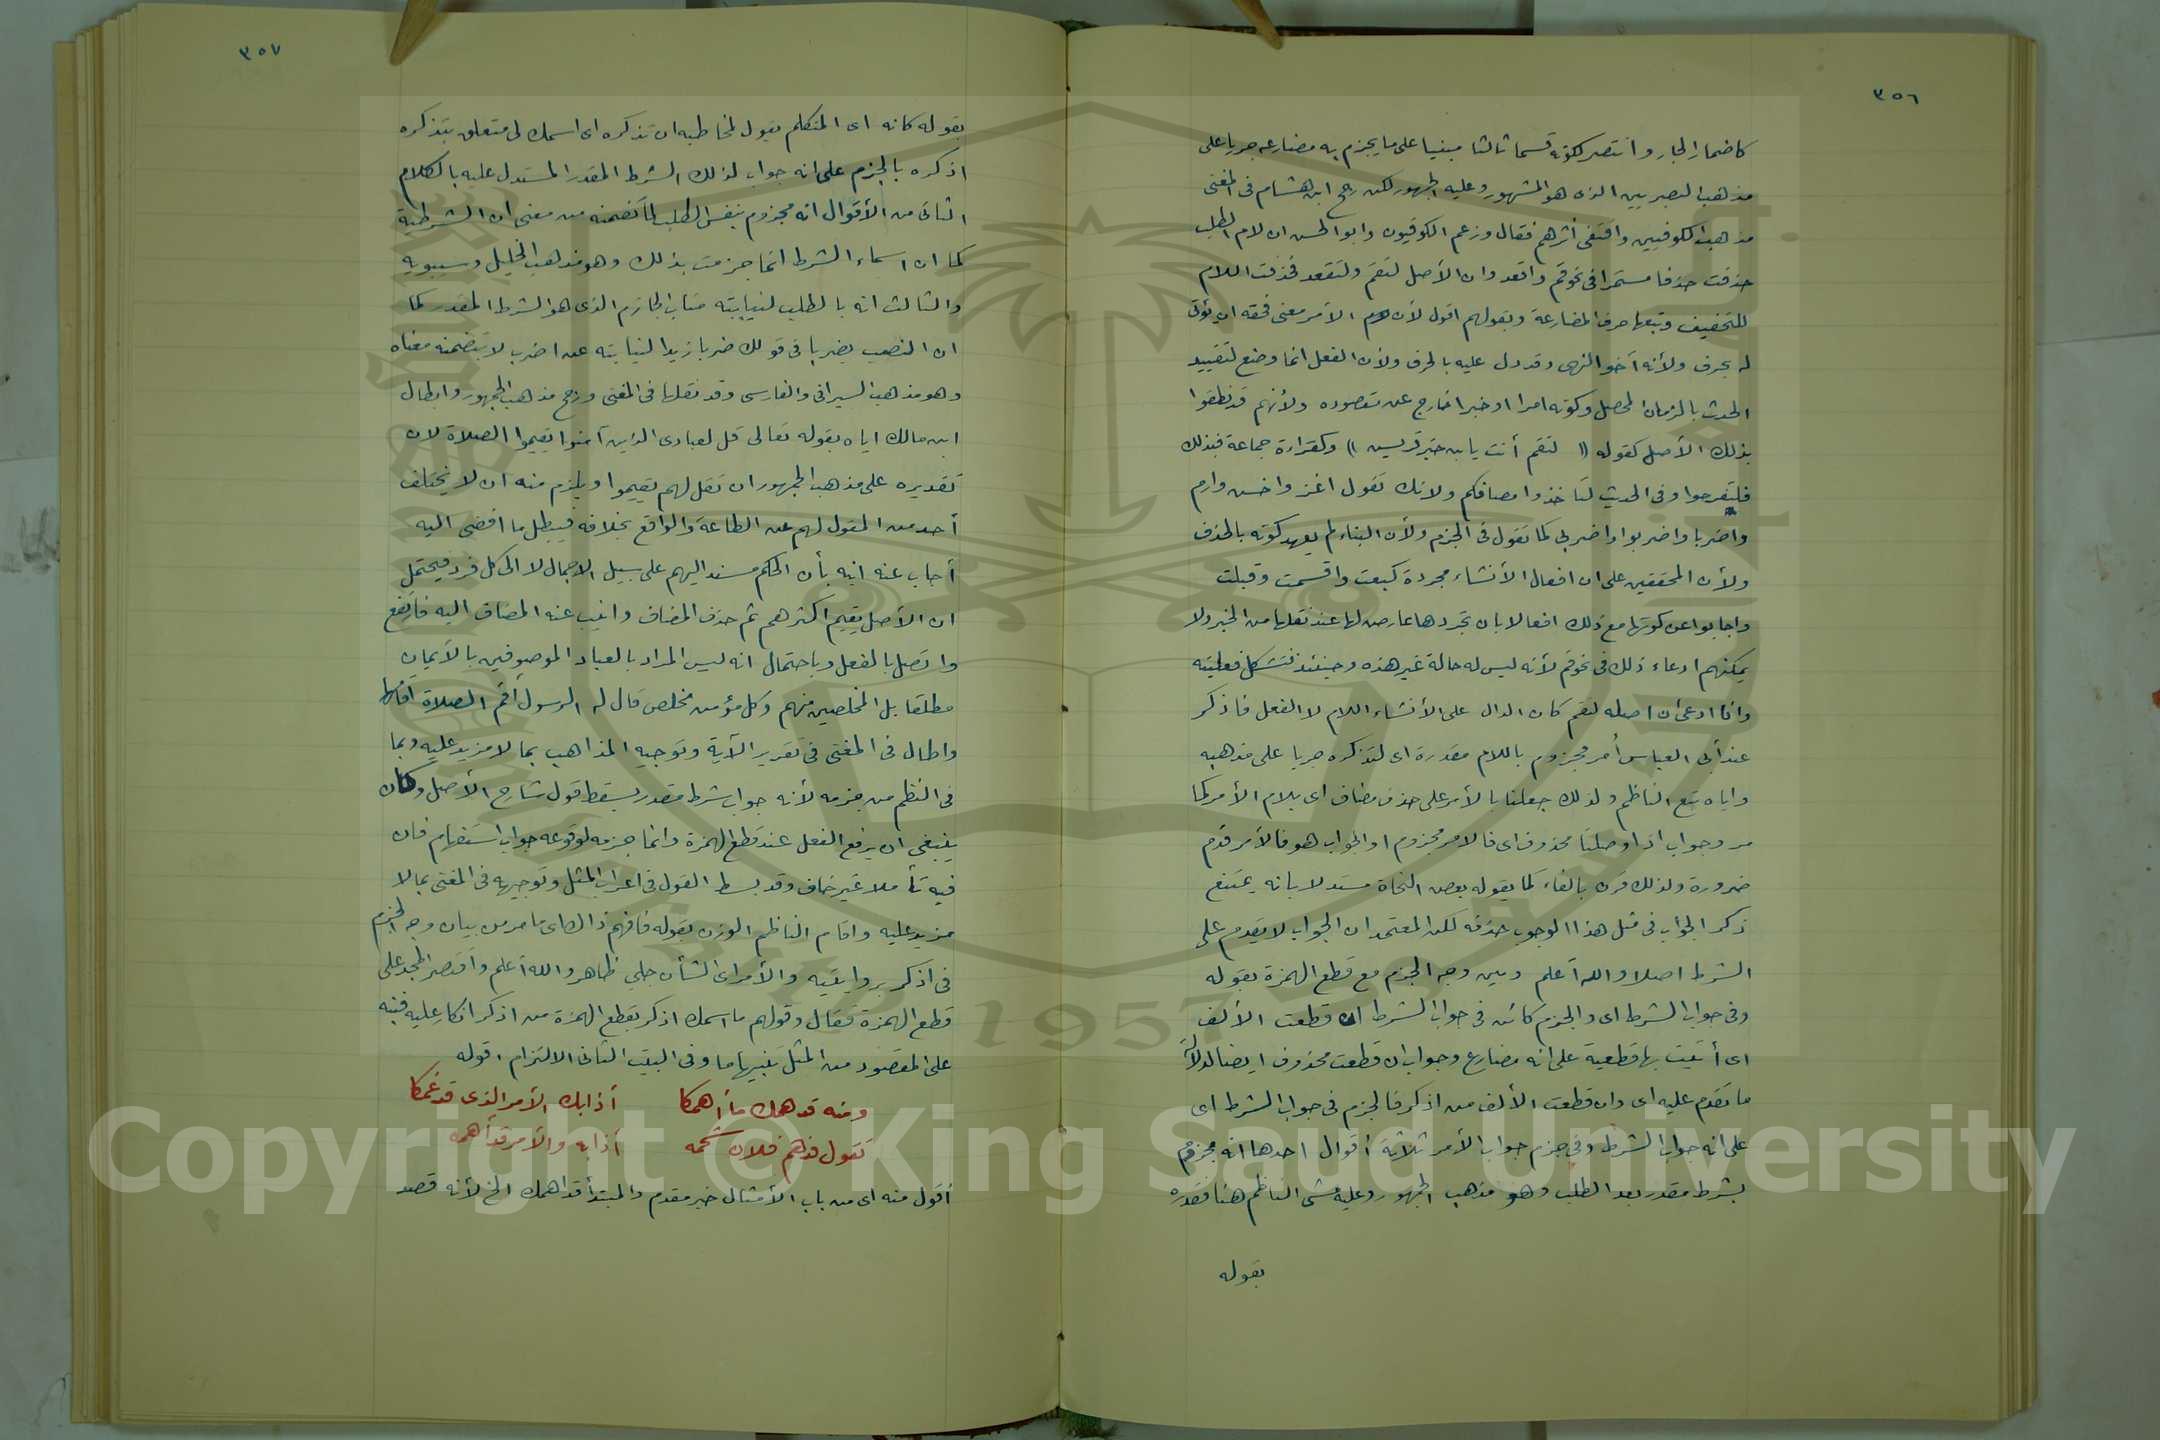 ٣٥٦
كاضمار الجار وانتصر لكونه قسما ثالثا مبنيا على ما يجزم به مضارعه جريا على
مذهب البصريين الذى هو المشهور وعليه الجمهور لكن رجح ابن هشام فى المغنى
مذهب الكوفيين واقتفى أثرهم فقال وزعم الكوفيون وابو الحسن ان لام الطلب
حذفت حذفا مستمرا فى نحو قم واقعد وان الأصل لتقم ولتقعد فحذفت اللام
للتخفيف وتبعها حرف المضارعة وبقولهم اقول لأن الامر معنى فحقه ان يؤدى
له بحرف ولأنه أخو النهى وقد دل عليه بالحرف ولأن الفعل انما وضع لتقييد
الحدث بالزمان المحصل وكونه امرا او خبرا خارج عن مقصوده ولأنهم قد نطقوا
بذلك الأصل كقوله (( لتقم أنت يا بن خير قريس )) وكقراءة جماعة فبذلك
فلتفرحوا وفى الحديث لتأخذوا مصافكم ولانك تقول اغز واخش وارم
واضربا واضربوا واضربى كما تقول فى الجزم ولأن البناء لم يعهد كونه بالحذف
ولأن المحققين على ان افعال الأنشاء مجردة كبعت واقسمت وقبلت
واجابوا عن كونها مع ذلك افعالا بان تجردها عارض لها عند نقلها من الخبر ولا
يمكنهم ادعاء ذلك فى نحو قم لأنه ليس له حالة غير هذه وحينئذ فتشكل فعليته
واذا ادعى أن اصله لتقم كان الدال على الأنشاء اللام لا الفعل فاذكر
عند أبى العباس أمر مجزوم باللام مقدرة اى لتذكره جريا على مذهبه
واياه تبع الناظم ولذلك جعلنا بالأمر على حذف مضاف اى بلام الأمر كما
مر وجواب اذا وصلتا محذوف اى فالامر مجزوم او الجواب هو فالأمر قدم
ضرورة ولذلك قرن بالفاء كما يقوله بعض النحاة مستدلا بانه يمتنع
ذكر الجواب فى مثل هذا الوجوب حذفه لكن المعتمد ان الجواب لا يقدم على
الشرط اصلا والله أعلم وبين وجه الجزم مع قطع الهمزة بقوله
وفى جواب الشرط اى والجزم كائن فى جواب الشرط ان قطعت الألف
اى أتيت بها قطعية على انه مضارع وجواب ان قطعت محذوف ايضا لدلالة
ما تقدم عليه اى وان قطعت الألف من اذكر فالجزم فى جواب الشرط اى
على انه جواب الشرط وفى جزم جواب الأمر ثلاثة أقوال احدها انه مجزوم
بشرط مقدر بعد الطلب وهو مذهب الجمهور وعليه مشى الناظم هنا فقدره
بقوله
٣٥٧
بقوله كانه اى المتكلم يقول لمخاطبه ان تذكره اى اسمك لى متعلق بتذكره
اذكره بالجزم على انه جواب لذلك الشرط المقدر المستدل عليه بالكلام
الثانى من الأقوال انه مجزوم بنفس الطلب لما تضمنه من معنى ان الشرطية
كما ان اسماء الشرط انما جزمت بذلك وهو مذهب الخليل وسيبويه
والثالث انه بالطلب لنيابته مناب الجازم الذى هو الشرط المقدر كما
ان النصب بضربا فى قولك ضربا زيدا لنيابته عن اضرب لا بتضمنه معناه
وهو مذهب السيرافى والفارسى وقد نقلها فى المغنى ورجح مذهب الجمهور وابطال
ابن مالك اياه بقوله تعالى قل لعبادى الذين آمنوا يقيموا الصلاة لان
تقديره على مذهب الجمهور ان تقل لهم يقيموا ويلزم منه ان لا يتخلف
أحد من المقول لهم عن الطاعة والواقع بخلافه فيبطل ما افضى اليه
أجاب عنه ابنه بأن الحكم مسند اليهم على سبيل الاجمال لا الى كل فرد فيحتمل
ان الأصل يقيم اكثرهم ثم حذف المضاف وانيب عنه المضاف اليه فارتفع
واتصل بالفعل وباحتمال انه ليس المراد بالعباد الموصوفين بالأيمان
مطلقا بل المخلصين منهم وكل مؤمن مخلص قال له الرسول أقم الصلاة اقامها
واطال فى المغنى فى تقرير الآية وتوجيه المذاهب بما لا مزيد عليه وبما
فى النظم من جزمه لأنه جواب شرط مقدر يسقط قول شارح الأصل وكان
ينبغى ان يرفع الفعل عند قطع الهمزة وانما جزمه لوقوعه جواب استفهام فان
فيه تأملا غير خاف وقد بسط القول فى اعراب المثل وتوجيهه فى المغنى بما لا
مزيد عليه واقام الناظم الوزن بقوله فافهم ذالك اى ما مر من بيان وجه الجزم
فى اذكر بروايتيه والأمر اى الشأن جلي ظاهر والله أعلم واقتصر المجد على
قطع الهمزة فقال وقولهم ما اسمك اذكر بقطع الهمزة من اذكر انكار عليه فنبه
على المقصود من المثل تنبيها ما وفى البيت الثانى الالتزام ، قوله
ومنه قد همك ما أهمكا أذابك الأمر الذى قد غمكا
تقول قد هم فلان شحمه أذابه والأمر قد أهمه
أقول منه اى من باب الأمثال خبر مقدم والمبتدأ قد اهمك الخ لأنه قصد
1957
Copyright © King Saud University